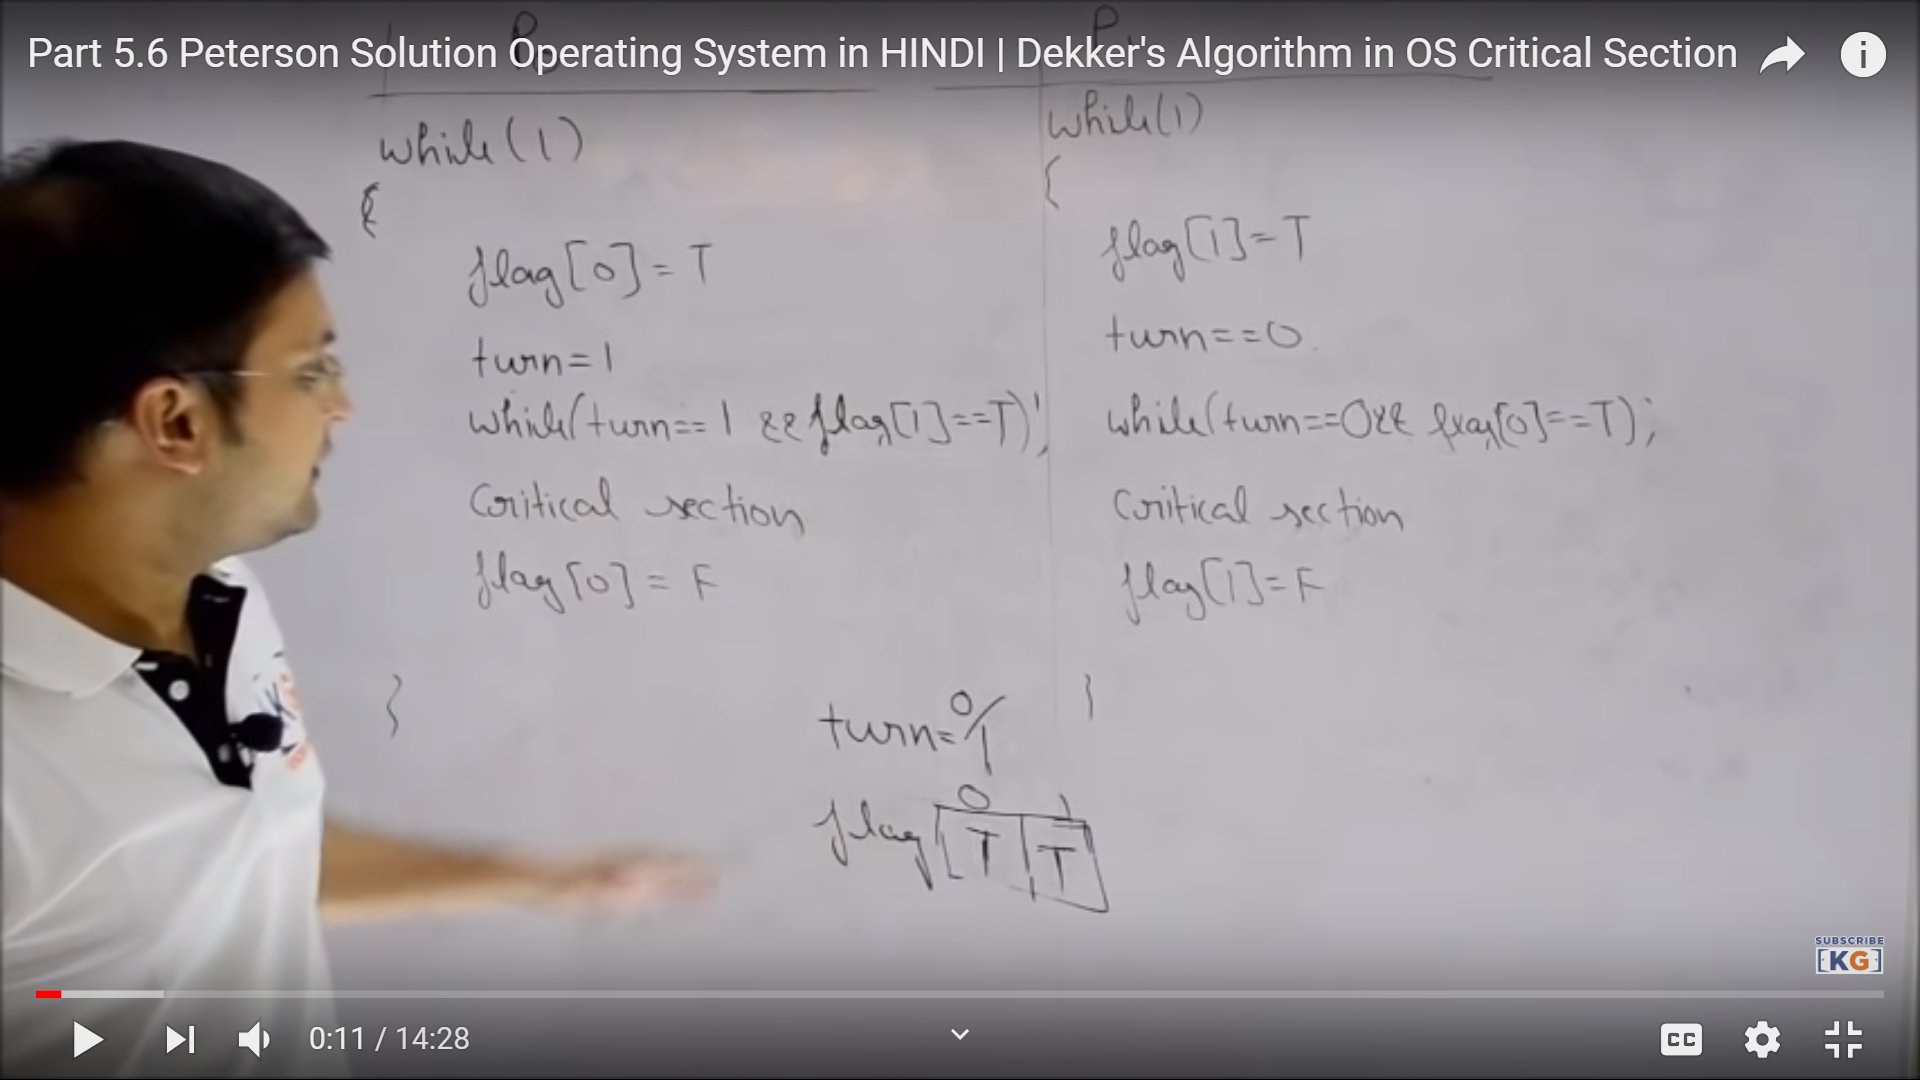 Part 5.6 Peterson Solution Operating System in HINDI | Dekker's Algorithm in OS Critical Section
while(1)
{
flag[0]=T
turn=1
while(turn==1 && flag[1]==T);
Critical section
flag[0]=F
}
while(1)
{
flag[1]=T
turn==0
while(turn==0&& flag[0]==T);
Critical section
flag[1]=F
}
turn=0/1
0 1
flag T T
SUBSCRIBE
[KG]
0:11 / 14:28
CC